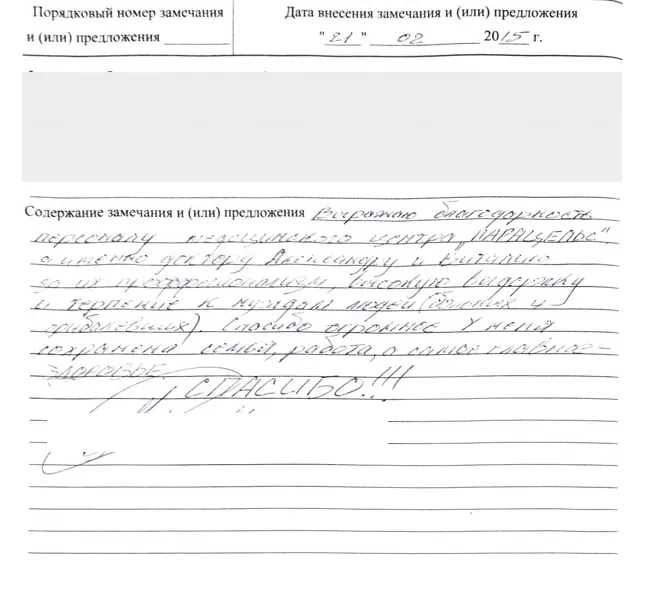 Порядковый номер замечания
и (или) предложения
Дата внесения замечания и (или) предложения
"21" 02 2015 г.
Содержание замечания и (или) предложения Выражаю благодарность
персоналу медицинского центра „ПАРАЦЕЛЬС",
а именно доктору Александру и Виталию
за их профессионализм, высокую выдержку
и терпение к нуждам людей (больных и
приболевших). Спасибо огромное У меня
сохранена семья, работа, а самое главное –
здоровье.
СПАСИБО!!!